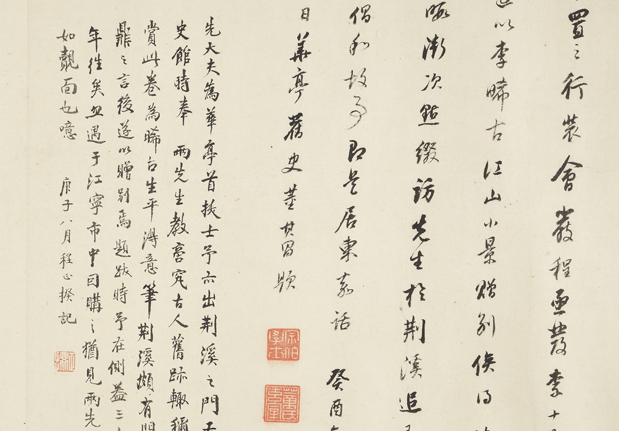 置之行装會歲程亟發李十
以李晞古江山小景贈別俟
漸次點綴訪先生於荆溪追
倡和故事即是居東嘉話 癸酉
日華亭舊史董其昌題
先大夫為華亭首拔士予亦出荆溪之門
史館時奉兩先生教言究古人舊跡輒稱
賞此卷為晞古生平得意筆荆溪頗有
鼎之言後遂以贈別焉題跋時予在側蓋三
年往矣忽遇于江寧市中因購之猶見兩先
如覿面也噫 庚子八月程正揆記